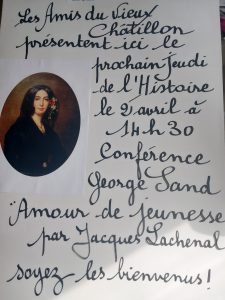 Les Amis du Vieux
Châtillon
présentent ici le
prochain jeudi
de l'Histoire
le 2 avril à
14 h 30
Conférence
George Sand
"Amour de jeunesse
par Jacques Lachenal
soyez les bienvenus !